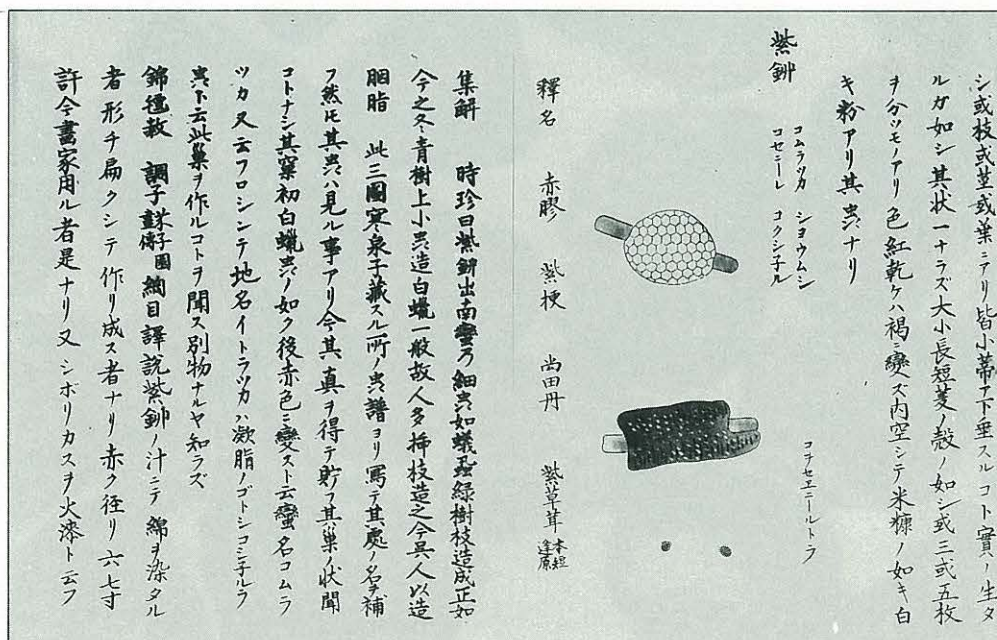 シ或枝或茎或葉ニアリ皆小蒂下垂スルコト實ノ生タ
ルカ如シ其状一ナラズ大小長短菱ノ殻ノ如シ或三或五枚
ヲ分ツモノアリ色紅乾ケハ褐ニ變ズ内空シテ米糠ノ如キ白
キ粉アリ其虫ナリ
紫鉚
コムラツカ ショウムシ
コセニーレ コクシ子ル
コチセエニールトラ
釋名 赤膠 紫梗 尚田丹 紫草茸 本經逢原
集解 時珍曰紫鉚出南蠻乃細虫如蟻虱緑樹枝造成正如
今之冬青樹上小虫造白蠟一般故人多挿枝造之今呉人以造
胭脂 此三圖寒泉子藏スル所ノ虫譜ヨリ寫テ其處ノ名ヲ補
フ然圧其虫ハ見ル事アリ今其真ヲ得テ貯フ其巣ノ状聞
コトナシ其窠初白蠟虫ノ如ク後赤色ニ變スト云蠻名コムラ
ツカ又云フロシンテ地名イトラツカハ漱脂ノゴトシコシ子ルラ
虫ト云此巣ヲ作ルコトヲ聞ス別物ナルヤ知ラズ
綿 調子 綱目譯説紫鉚ノ汁ニテ綿ヲ染タル
者形チ扁クシテ作リ成ス者ナリ赤ク径リ六七寸
許今畫家用ル者是ナリ又シボリカスヲ火漆ト云フ